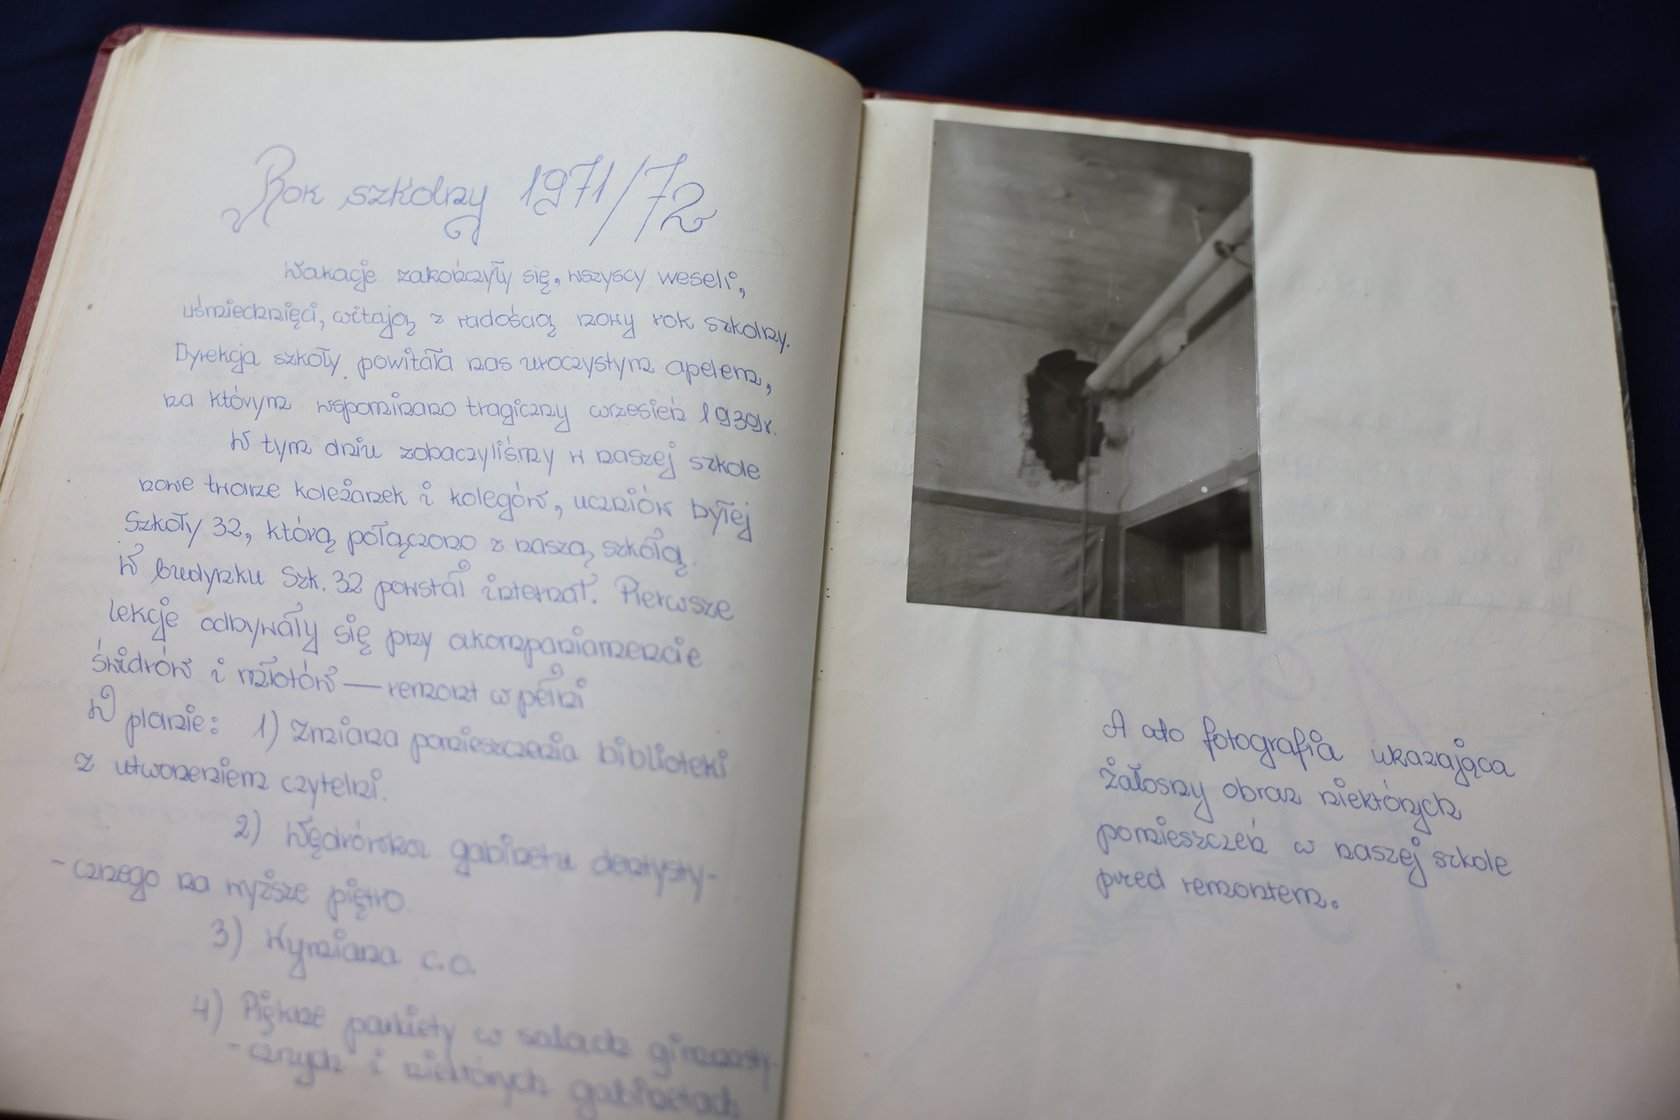 Rok szkolny 1971/72
Wakacje zakończyły się, wszyscy weseli,
uśmiechnięci, witają z radością nowy rok szkolny.
Dyrekcja szkoły powitała nas uroczystym apelem,
na którym wspominano tragiczny wrzesień 1939r.
W tym dniu zobaczyliśmy w naszej szkole
nowe twarze koleżanek i kolegów, uczniów byłej
Szkoły 32, którą połączono z naszą szkołą.
W budynku Szk. 32 powstał internat. Pierwsze
lekcje odbywały się przy akompaniamencie
świdrów i młotów — remont w pełni
W planie: 1) Zmiana pomieszczenia biblioteki
z utworzeniem czytelni.
2) Wędrówka gabinetu dentysty-
-cznego na wyższe piętro.
3) Wymiana c.o.
4) Piękne parkiety w salach gimnasty-
-cznych i niektórych gabinetach
A oto fotografia ukazująca
żałosny obraz niektórych
pomieszczeń w naszej szkole
przed remontem.